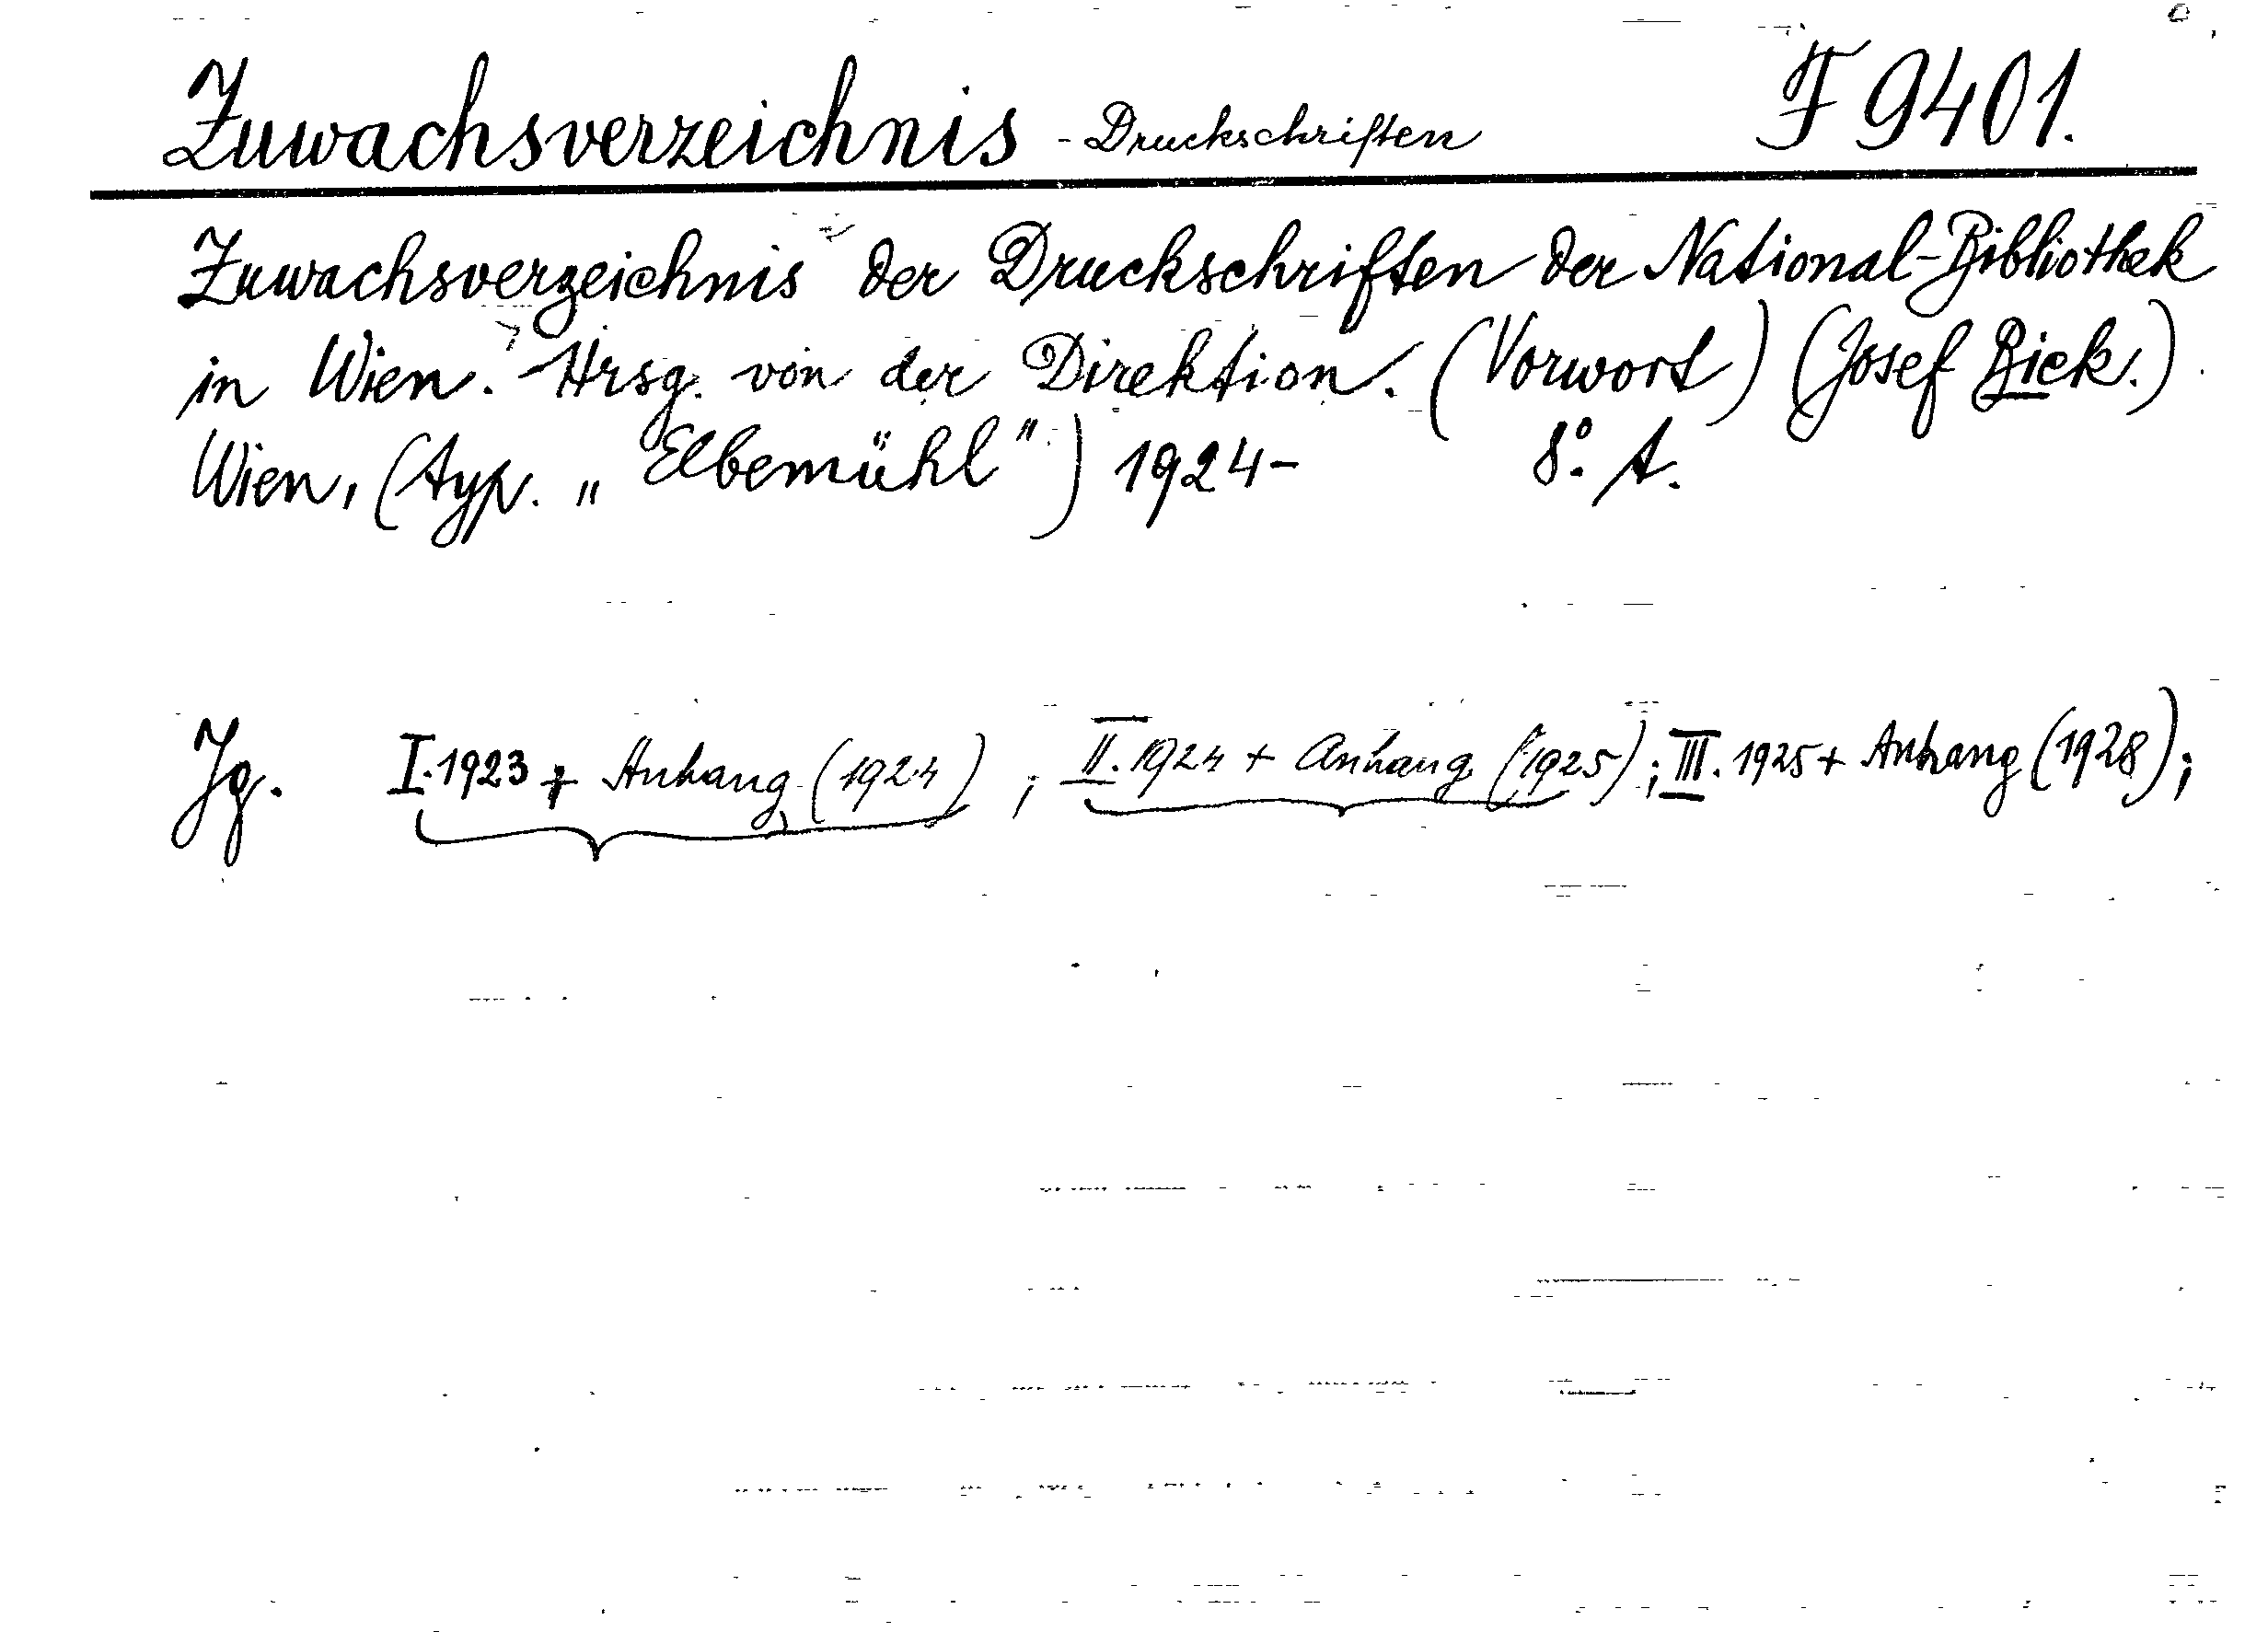 Zuwachsverzeichnis - Druckschriften F 9401.
Zuwachsverzeichnis der Druckschriften der National-Bibliothek
in Wien. Hrsg. von der Direktion. (Vorwort) (Josef Bick.)
Wien, (typ. „Elbemühl") 1924- 8°. A.
Jg. I. 1923 + Anhang (1924) ; II. 1924 + Anhang (1925) ; III. 1925 + Anhang (1928) ;